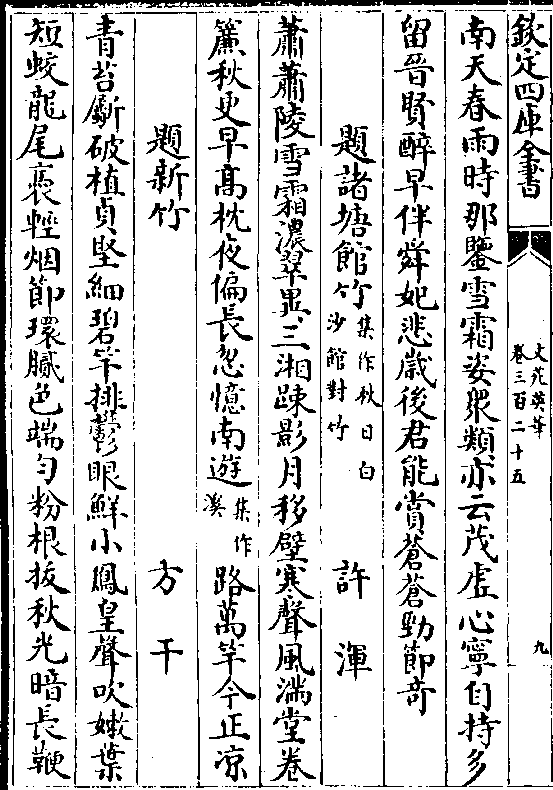 欽定四庫全書
文苑英華
卷三百二十五
九
南天春雨時那鑒雪霜姿衆類亦云茂虚心寧自持多
留晉賢醉早伴舜妃悲歳後君能賞蒼蒼勁節奇
題諸塘館竹集作秋日白沙館對竹 許渾
蕭蕭陵雪霜濃翠異三湘踈影月移壁寒聲風滿堂卷
簾秋更早髙枕夜偏長忽憶南遊集作溪路萬竿今正凉
題新竹 方干
青苔斸破植貞堅細碧竿排鬱眼鮮小鳳皇聲吹嫩葉
短蛟龍尾褭輕烟節環膩色端匀粉根拔秋光暗長鞭